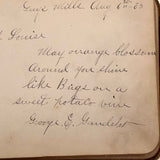 Mill Aug
Louise
May orange blossoms
Around you shine
like Bugs on a
sweet potato vine
George E.